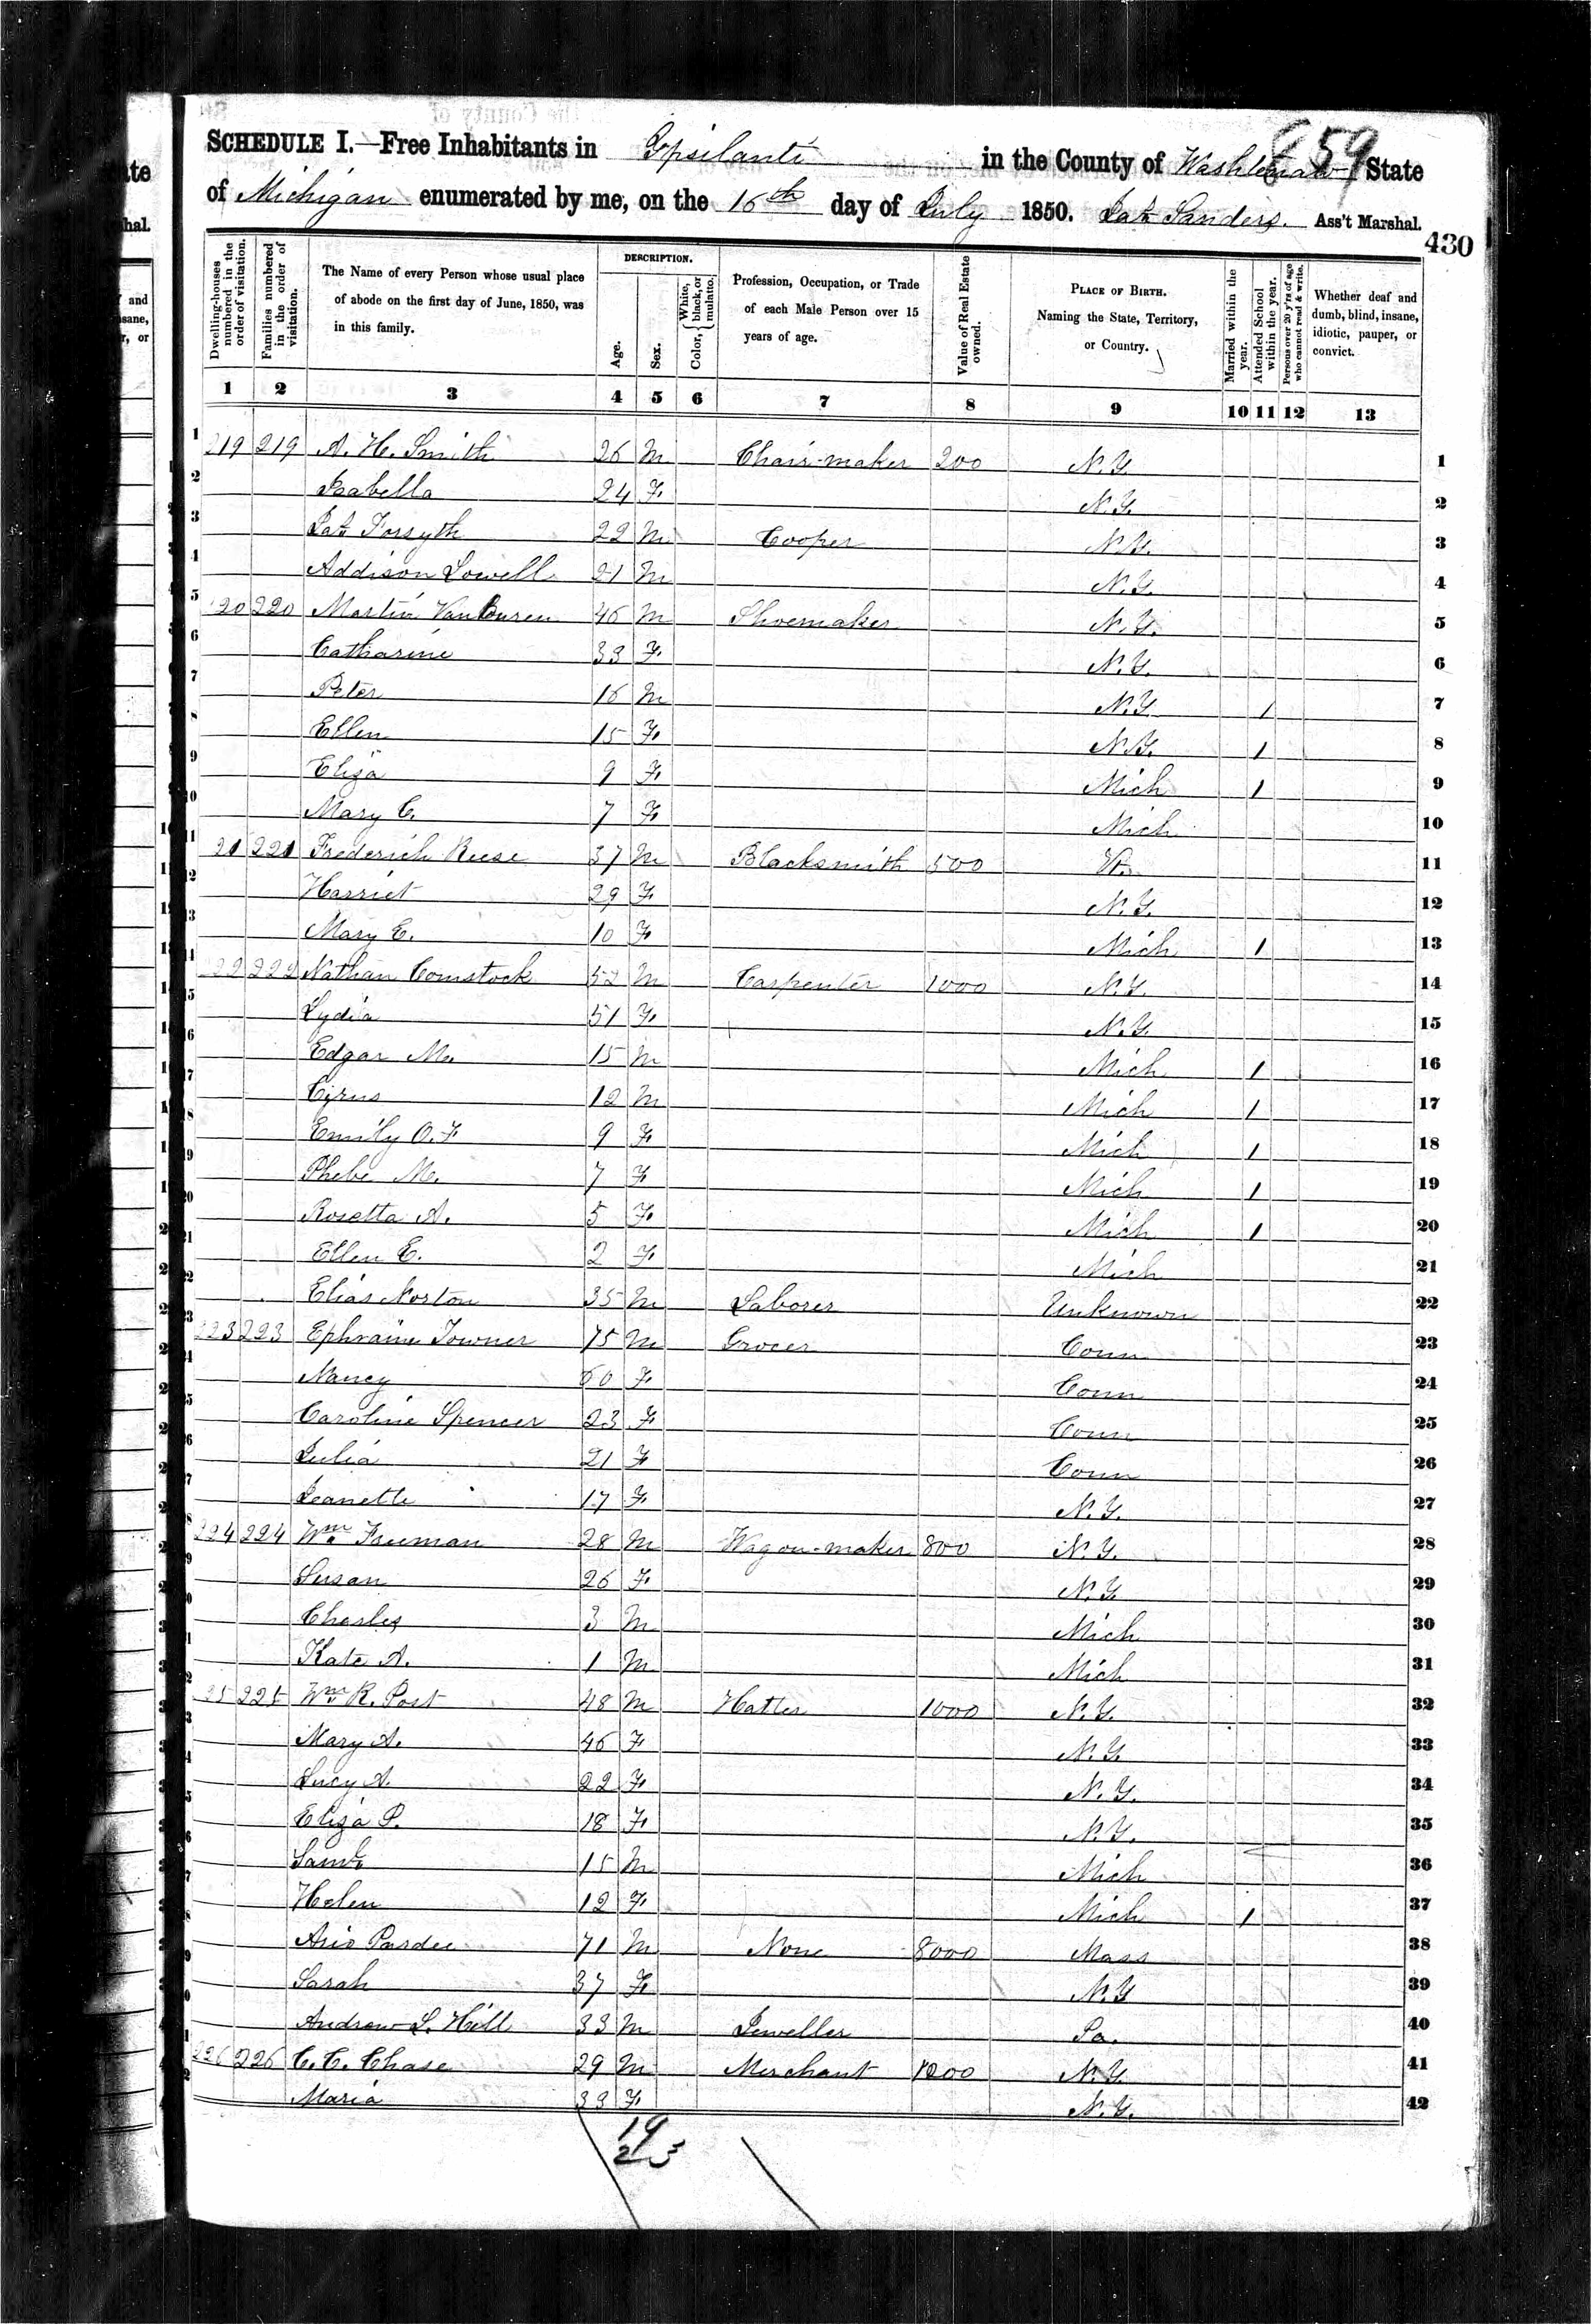 659
SCHEDULE I.—Free Inhabitants in Ypsilanti in the County of Washtenaw State
of Michigan enumerated by me, on the 16th day of July 1850. Jas Sanders. Ass't Marshal.
430
Dwelling-houses numbered in the order of visitation.
Families numbered in the order of visitation.
The Name of every Person whose usual place of abode on the first day of June, 1850, was in this family.
DESCRIPTION.
Age.
Sex.
Color, White, black, or mulatto.
Profession, Occupation, or Trade of each Male Person over 15 years of age.
Value of Real Estate owned.
PLACE OF BIRTH. Naming the State, Territory, or Country.
Married within the year.
Attended School within the year.
Persons over 20 y'rs of age who cannot read & write.
Whether deaf and dumb, blind, insane, idiotic, pauper, or convict.
1 2 3 4 5 6 7 8 9 10 11 12 13
1 219 219 A. H. Smith 26 M Chair-maker 200 N.Y. 1
2 Isabella 24 F. N.Y. 2
3 Jas Forsyth 22 M Cooper N.Y. 3
4 Addison Lowell 21 M N.Y. 4
5 220 220 Martin VanBuren 46 M Shoemaker N.Y. 5
6 Catharine 33 F. N.Y. 6
7 Peter 16 M N.Y. 1 7
8 Ellen 15 F. N.Y. 1 8
9 Eliza 9 F. Mich 1 9
10 Mary C. 7 F. Mich 10
11 21 221 Frederich Reese 37 M Blacksmith 500 Vt. 11
12 Harriet 29 F. N.Y. 12
13 Mary E. 10 F. Mich 1 13
22 222 Nathan Comstock 52 M Carpenter 1000 N.Y. 14
15 Lydia 51 F. N.Y. 15
16 Edgar M. 15 M Mich 1 16
17 Cyrus 12 M Mich 1 17
18 Emily O. F 9 F. Mich 1 18
19 Phebe M. 7 F. Mich 1 19
20 Rosetta A. 5 F. Mich 1 20
21 Ellen E. 2 F. Mich 21
22 Elias Norton 35 M Laborer Unknown 22
223 223 Ephraim Towner 75 M Grocer Conn 23
Nancy 60 F. Conn 24
Caroline Spencer 23 F. Conn 25
Julia 21 F. Conn 26
Jeanette 17 F. N.Y. 27
224 224 Wm Freeman 28 M Wagon-maker 800 N.Y. 28
Susan 26 F. N.Y. 29
Charles 3 M Mich 30
Kate A. 1 M Mich 31
25 225 Wm R. Post 48 M Hatter 1000 N.Y. 32
Mary A. 46 F. N.Y. 33
Lucy A. 22 F. N.Y. 34
Eliza P. 18 F. N.Y. 35
Saml 15 M Mich 36
Helen 12 F. Mich 1 37
Pardee 71 M None 8000 Mass 38
Sarah 37 F. N.Y 39
Andrew L. Hill 33 M Jeweller Pa. 40
226 226 C. C. Chase 29 M Merchant 1200 N.Y. 41
Maria 33 F. N.Y. 42
19
23